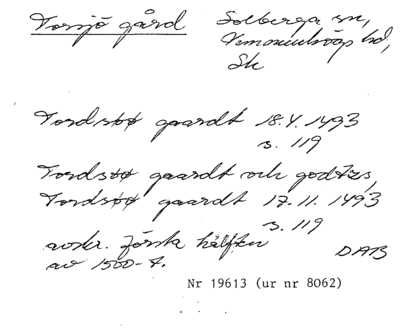 Torsjö gård
Solberga sn,
Vemmenhögs hd,
Sk
Tordsøø gaardt 18.4.1493
s. 119
Tordsøø gaardt och godtzs,
Tordsøø gaardt 17.11.1493
s. 119
avskr. första hälften
av 1500-t.
DAB
Nr 19613 (ur nr 8062)